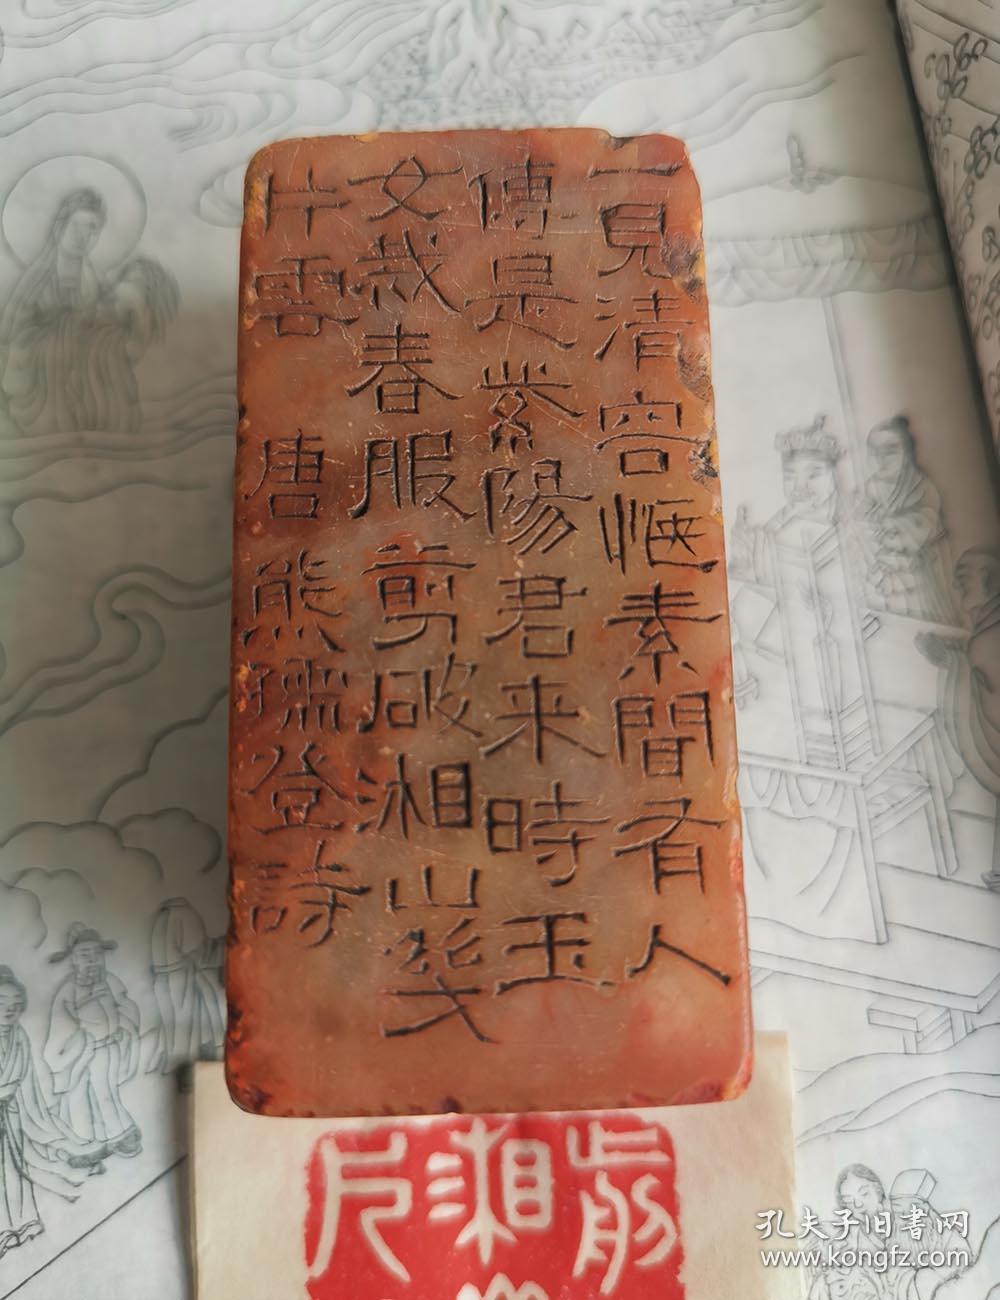 一見清容愜素聞有人
傳是紫陽君来時玉
女裁春服剪破湘山幾
片雲 唐 熊孺登詩
剪
湘
片
孔夫子旧書网
www.kongfz.com